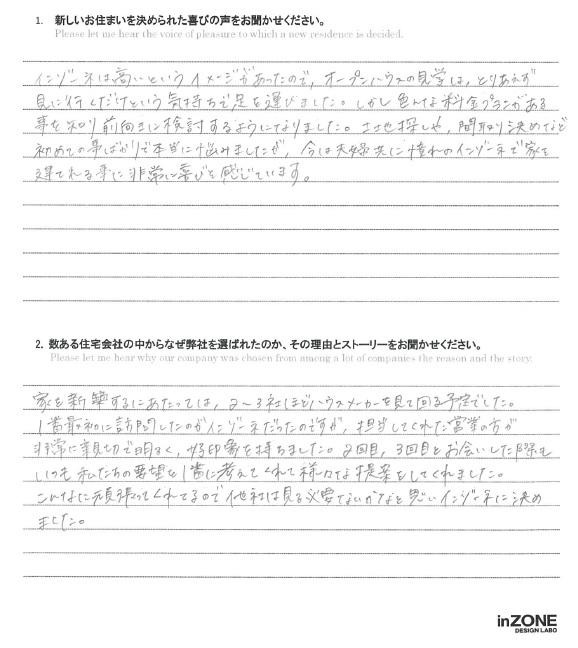 1. 新しいお住まいを決められた喜びの声をお聞かせください。
Please let me hear the voice of pleasure to which a new residence is decided.
インゾーネは高いというイメージがあったので、オープンハウスの見学は、とりあえず
見に行くだけという気持ちで足を運びました。しかし色んな料金プランがある
事を知り前向きに検討するようになりました。土地探しや、間取り決めなど
初めての事ばかりで本当に悩みましたが、今は夫婦共に憧れのインゾーネで家を
建てれる事に非常に喜びを感じています。
2. 数ある住宅会社の中からなぜ弊社を選ばれたのか、その理由とストーリーをお聞かせください。
Please let me hear why our company was chosen from among a lot of companies the reason and the story.
家を新築するにあたっては、2〜3社ほどハウスメーカーを見て回る予定でした。
1番最初に訪問したのがインゾーネだったのですが、担当してくれた営業の方が
非常に親切で明るく、好印象を持ちました。2回目、3回目とお会いした際も
いつも私たちの要望を1番に考えてくれて様々な提案をしてくれました。
こんなに頑張ってくれてるので他社は見る必要ないかなと思いインゾーネに決め
ました。
inZONE
DESIGN LABO